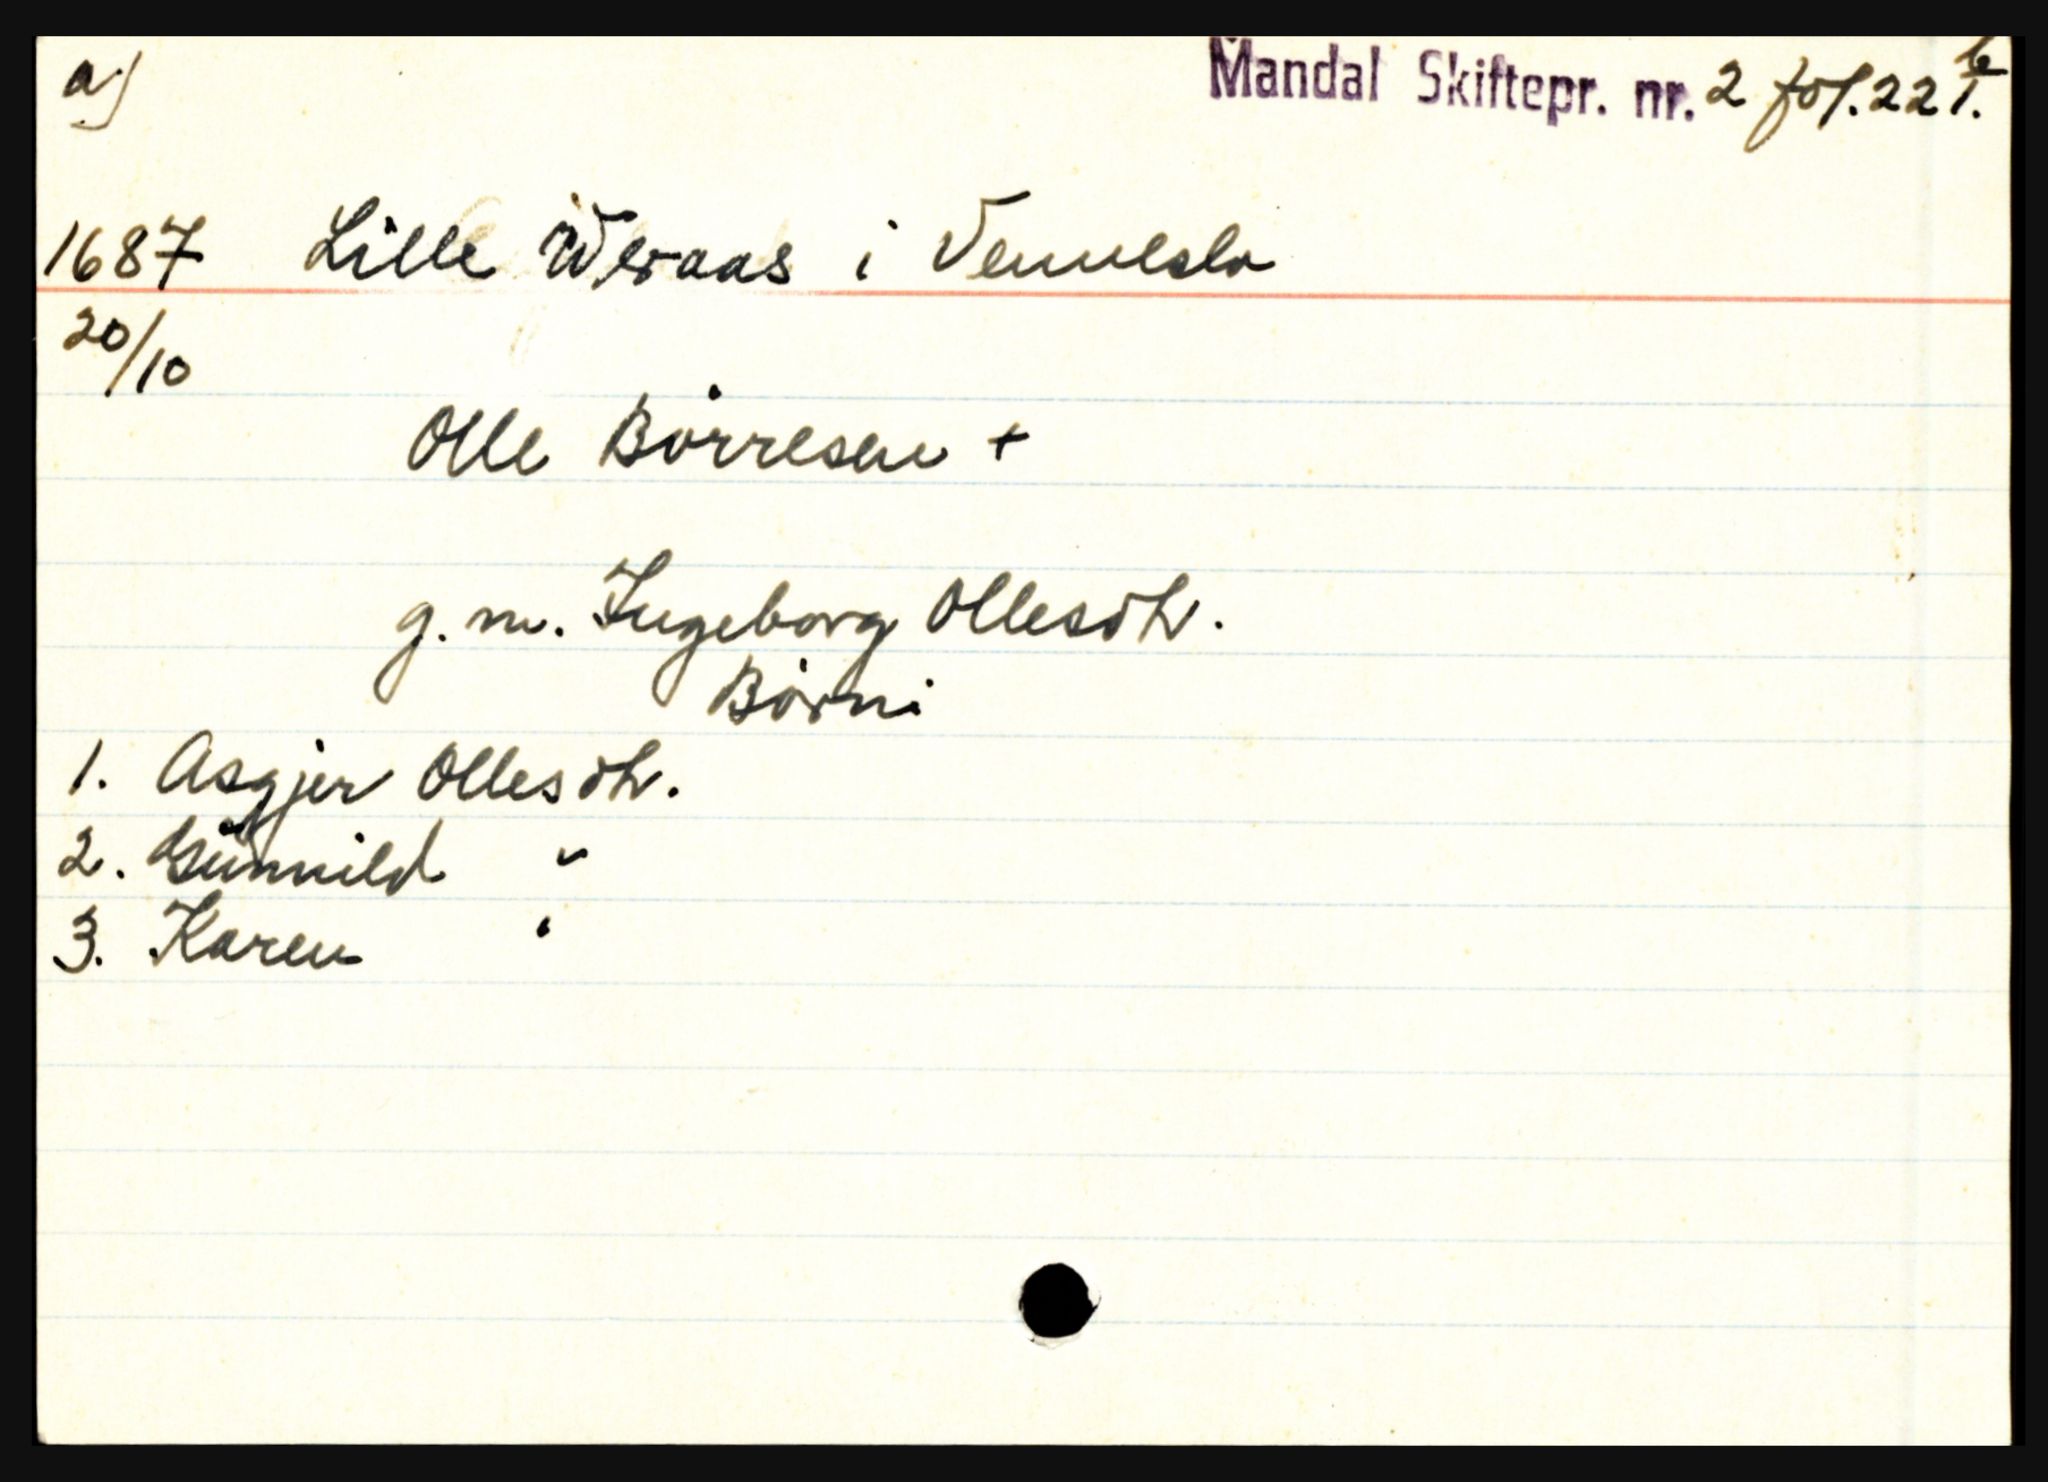 a)
Mandal Skiftepr. nr. 2 fol. 221. b
1687 Lille Weraas i Vennesla
20/10
Olle Börresen +
g. m. Ingeborg Ollesdtr.
Börn:
1. Asgjer Ollesdtr.
2. Gunnild "
3. Karen "